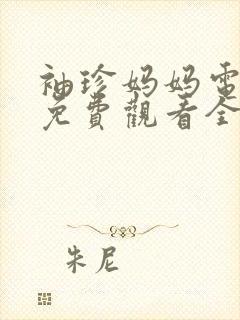 袖珍妈妈電
免費觀看全
朱尼